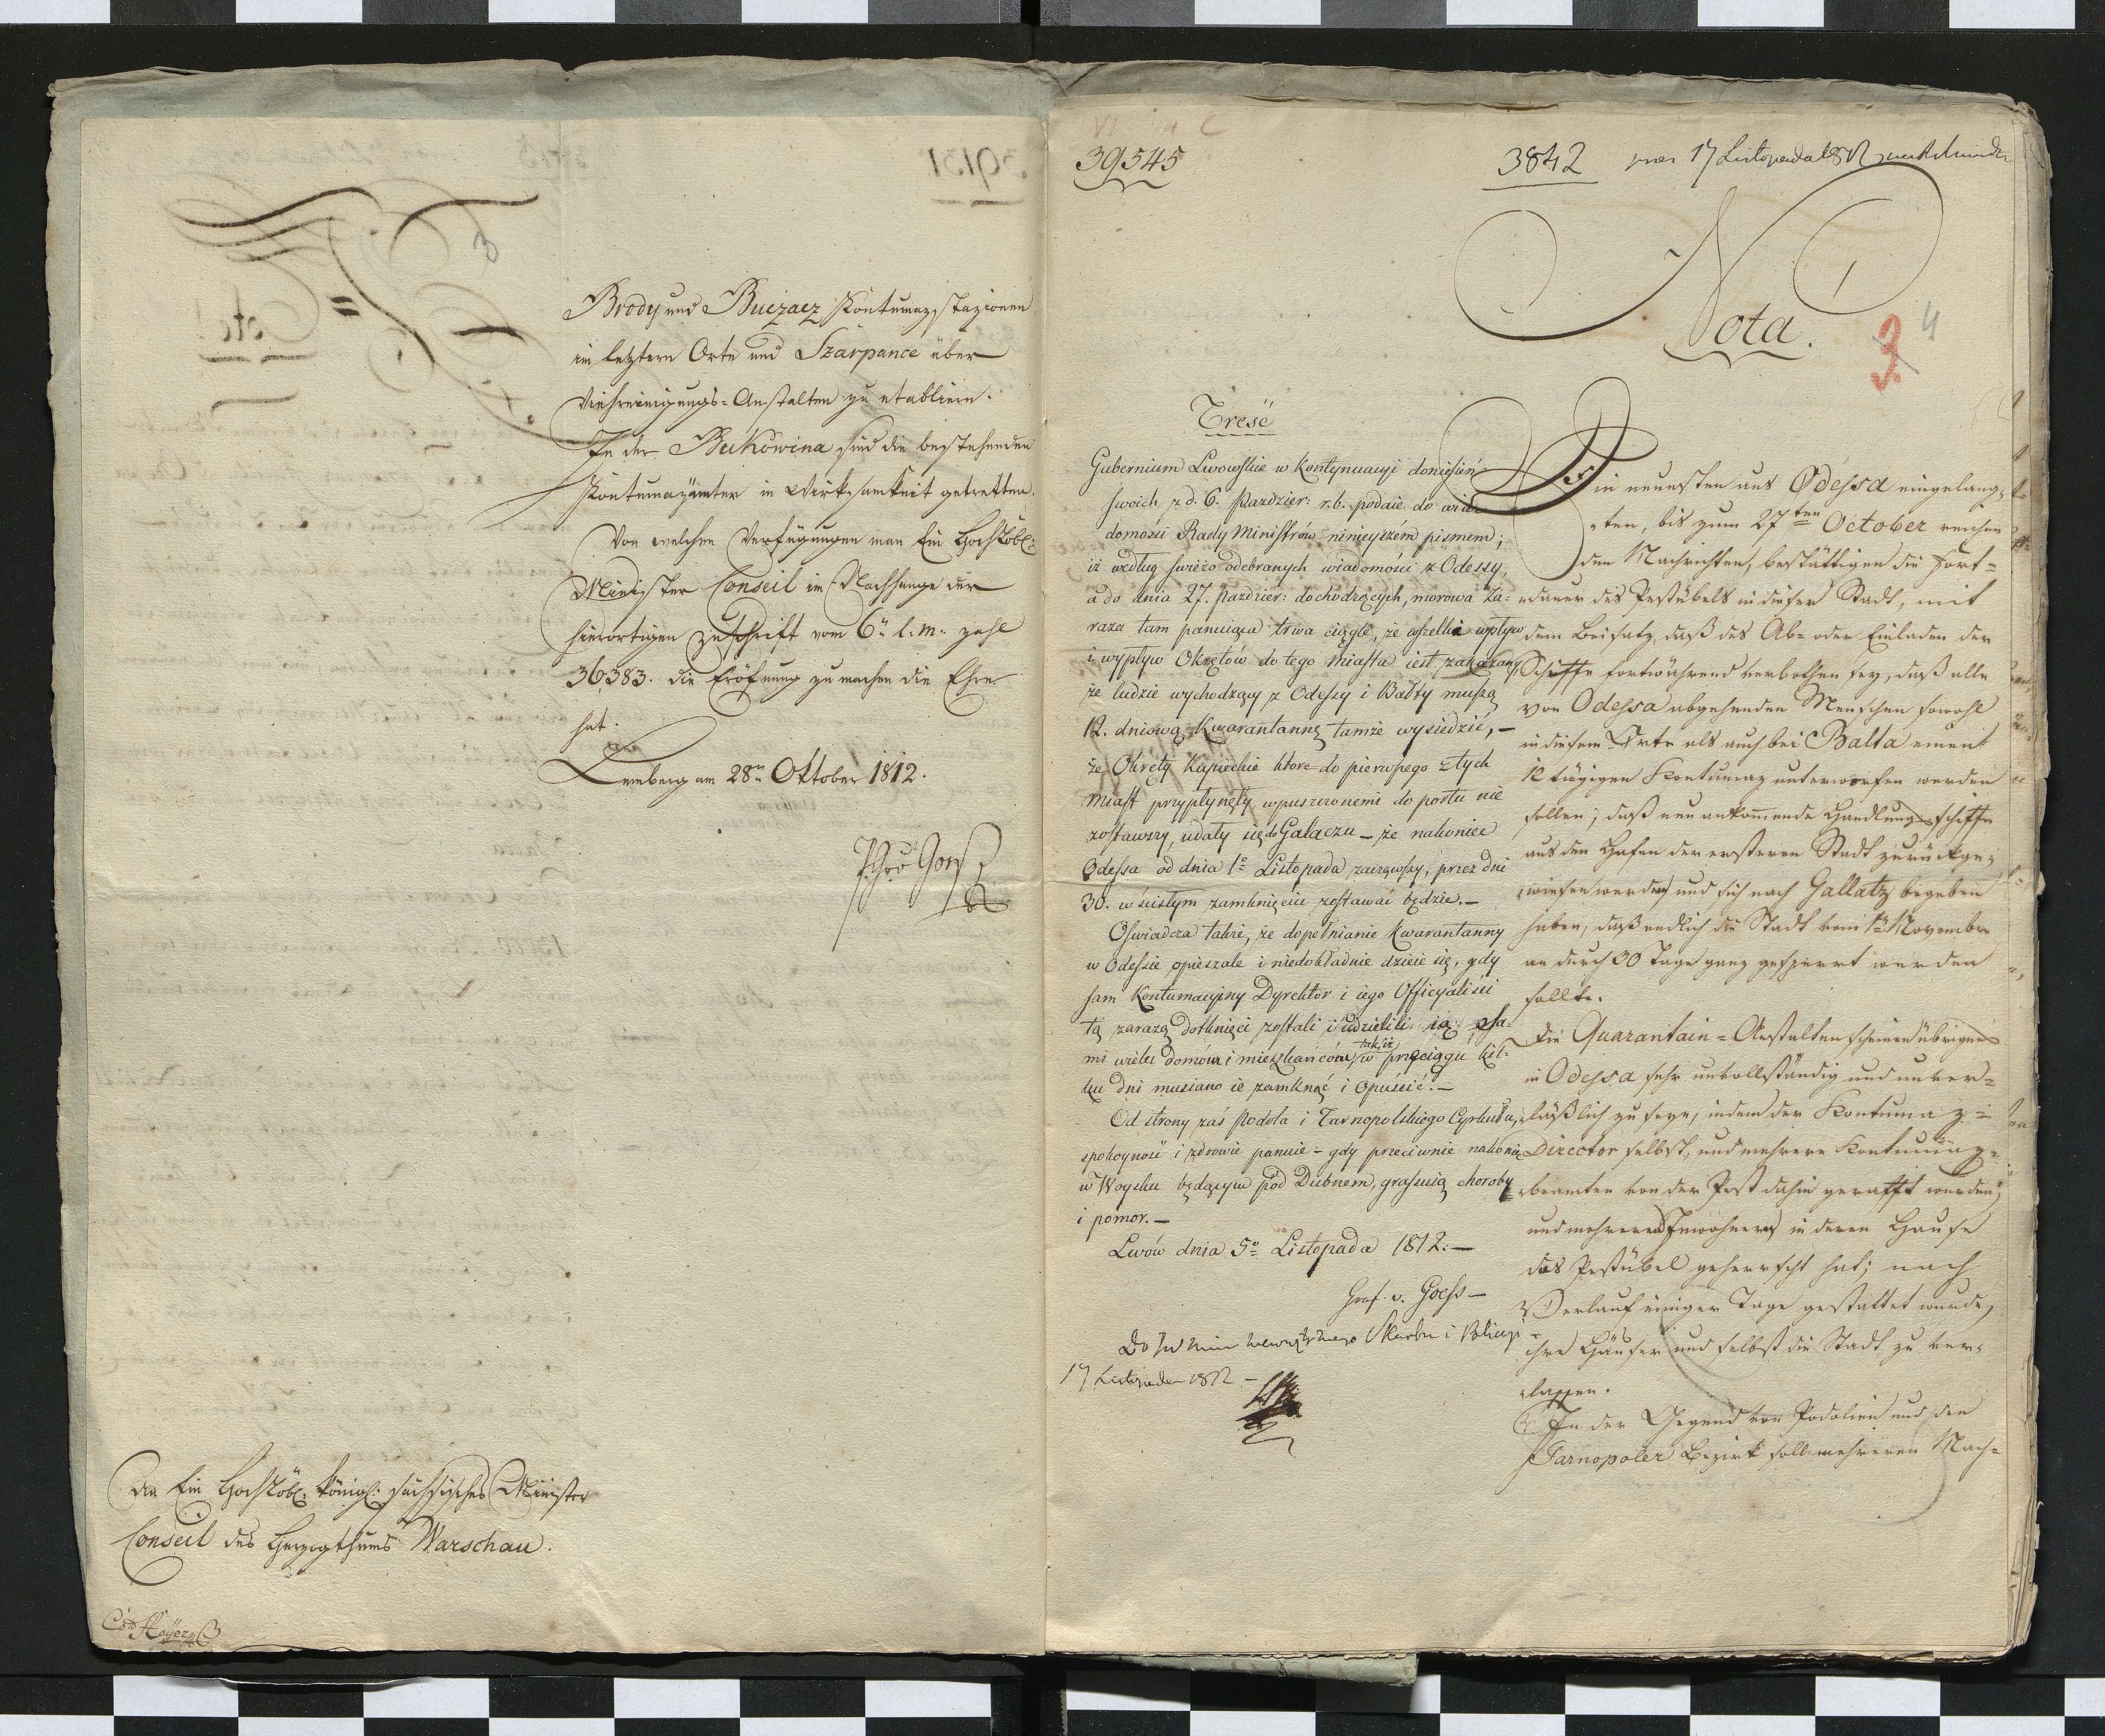 Brody und Buczacz Kontumazstazionen
im letztern Orte und Szarpance über
Viehreinigungs-Anstalten zu etabliren.
In der Bukowina sind die bestehenden
Kontumazämter in Wirksamkeit getretten.
Von welchen Verfügungen man Ein Hochlöbl:
Minister Conseil im Nachhange der
hierortigen Zuschrift vom 6n l. M. Zahl
36,383. die Eröfnung zu machen die Ehre
hat.
Lemberg am 28n Oktober 1812.
An Ein Hochlöbl: königl: sächsisches Minister
Conseil des Herzogthums Warschau.
39545
3842 17 Listopada 1812
Nota.
3 4
Treść
Gubernium Lwowskie w kontynuacyi doniesień
swoich z d. 6. Pazdzier: r. b. podaie do wia
domości Rady Ministrów ninieyszém pismem;
iż według świeżo odebranych wiadomości z Odessy,
a do dnia 27. Pazdzier: dochodzących, morowa za-
raza tam panuiąca trwa ciągle, że wszelki wpływ
i wypływ Okrętów do tego miasta iest zakazany
że ludzie wychodzący z Odessy i Bałty muszą
12. dniową Kwarantannę tamże wysiedzić, –
że Okręty Kupieckie które do pierwszego z tych
Miast przypłynęły wpuszczonemi do portu nie
zostawszy, udały się do Galaczu – że nakoniec
Odessa od dnia 1o Listopada zacząwszy, przez dni
30. w ścisłym zamknięciu zostawać będzie. –
Oświadcza także, że dopełnianie Kwarantanny
w Odessie opieszale i niedokładnie dzieie się, gdy
sam Kontumacyiny Dyrektor i iego Officyaliści
tą zarazą dotknięci zostali i udzielili ią
mi wielu domów i mieszkańców, tak iż w przeciągu kil-
ku dni musiano ie zamknąć i opuścić. –
Od strony zaś Podola i Tarnopolskiego Cyrkułu,
spokoyność i zdrowie panuie – gdy przeciwnie nakoniec
w Woysku będącym pod Dubnem, grassuią choroby
i pomor. –
Lwów dnia 5o Listopada 1812. –
Graf v. Goess –
Skarbu i Policyi
17 Listopada 1812 –
Die neuesten aus Odessa eingelang-
ten, bis zum 27ten October reichen
den Nachrichten, bestättigen die Fort-
dauer des Pestübels in dieser Stadt, mit
dem Beisatz, daß das Ab- oder Einladen der
Schiffe fortwährend verbothen sey, daß alle
von Odessa abgehenden Menschen sowohl
in diesem Orte als auch bei Balta einer
12 tägigen Kontumaz unterworfen werden
sollen; daß neu ankommende Handlungsschiffe
aus den Hafen der ersteren Stadt zurückge-
wiesen werden und sich nach Gallatz begeben
haben, daß endlich die Stadt vom 1n November
an durch 30 Tage ganz gesperrt werden
sollte.
Die Quarantain-Anstalten scheinen übrigens
in Odessa sehr unvollständig und unver-
läßlich zu seyn, indem der Kontumaz-
Director selbst, und mehrere Kontumaz-
beamten von der Pest dahin gerafft wurden,
und mehreren Inwohnern in deren Hause
das Pestübel geherrscht hat; nach
Verlauf einiger Tage gestattet wurde,
ihre Häuser und selbst die Stadt zu ver-
lassen.
In der Gegend von Podolien und den
Tarnopoler Bezirk soll mehreren Nach-